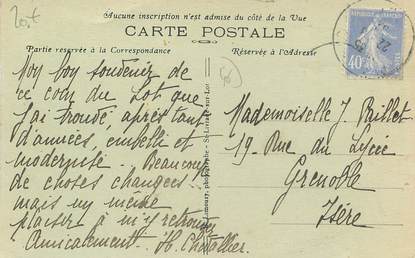 Aucune inscription n'est admise du côté de la Vue
CARTE POSTALE
Partie réservée à la Correspondance
Réservée à l'Adresse
Mon bon souvenir de
ce coin du Lot que
j'ai trouvé, après tant
d'années, embelli et
modernisé. Beaucoup
de choses changées!!
mais un même
plaisir à m'y retrouver
Amicalement. H. Chatallier.
Mademoiselle J. Paillet
19. Rue du Lycée
Grenoble
Isère
40